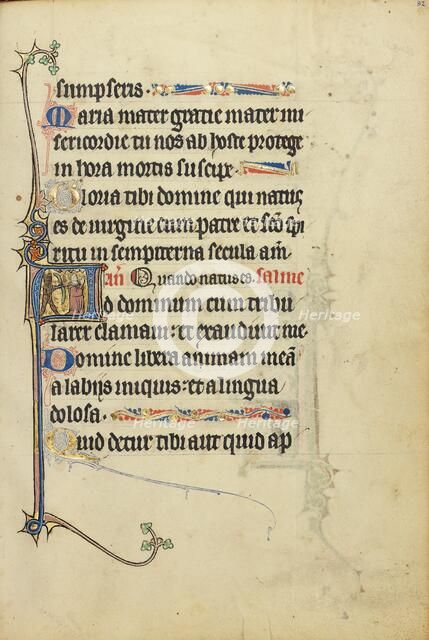 82
sumpseris.
Maria mater gratie mater mi
sericordie tu nos ab hoste protege
in hora mortis suscipe.
Gloria tibi domine qui natus
es de uirgine cum patre et sco spi
ritu in sempiterna secula am̅
an̅ Quando natus es. salme
Ad dominum cum tribu
larer clamaui: et exaudiuit me.
Domine libera animam mea̅
a labijs iniquis: et a lingua
dolosa.
Quid detur tibi aut quid ap
Heritage
Heritage
Heritage
Heritage